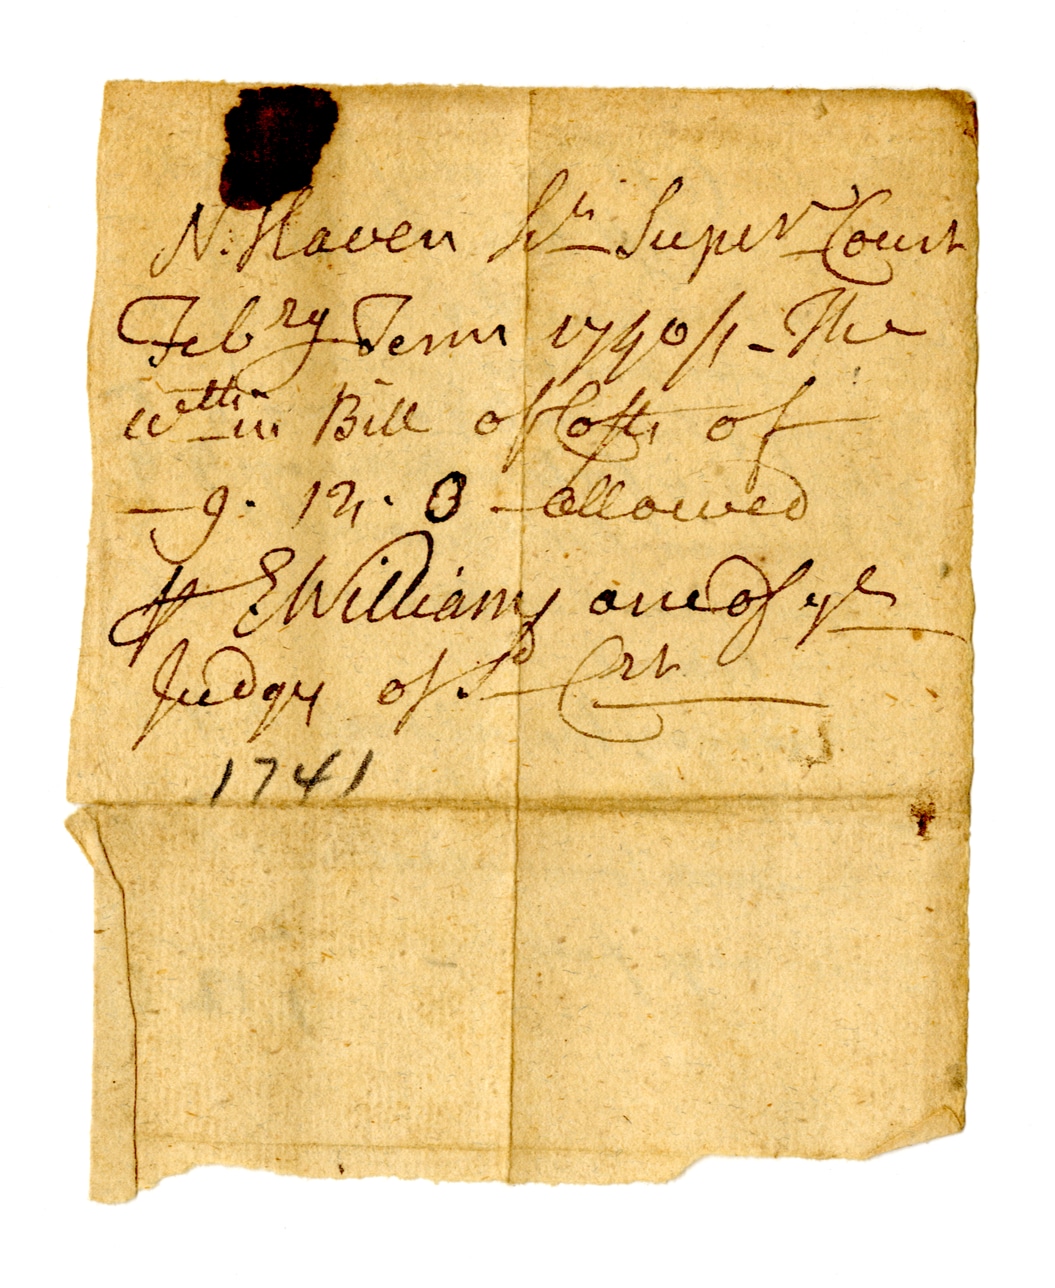 N. Haven Ss Super Court
Febry Term 1740/1 - The
within Bill of Costs of
9. 12. 0 allowed
pr E Williams one of ye
Judges of sd Crt
1741